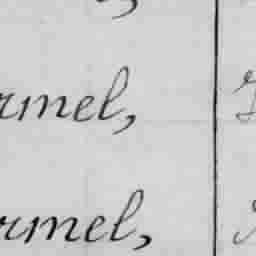 rmel,
rmel,